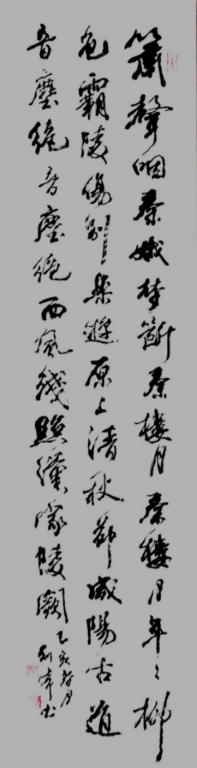 簫聲咽秦娥梦断秦樓月秦樓月年々柳
色霸陵傷别樂遊原上清秋節咸陽古道
音塵絶音塵絶西風殘照漢家陵闕
乙亥春月
书